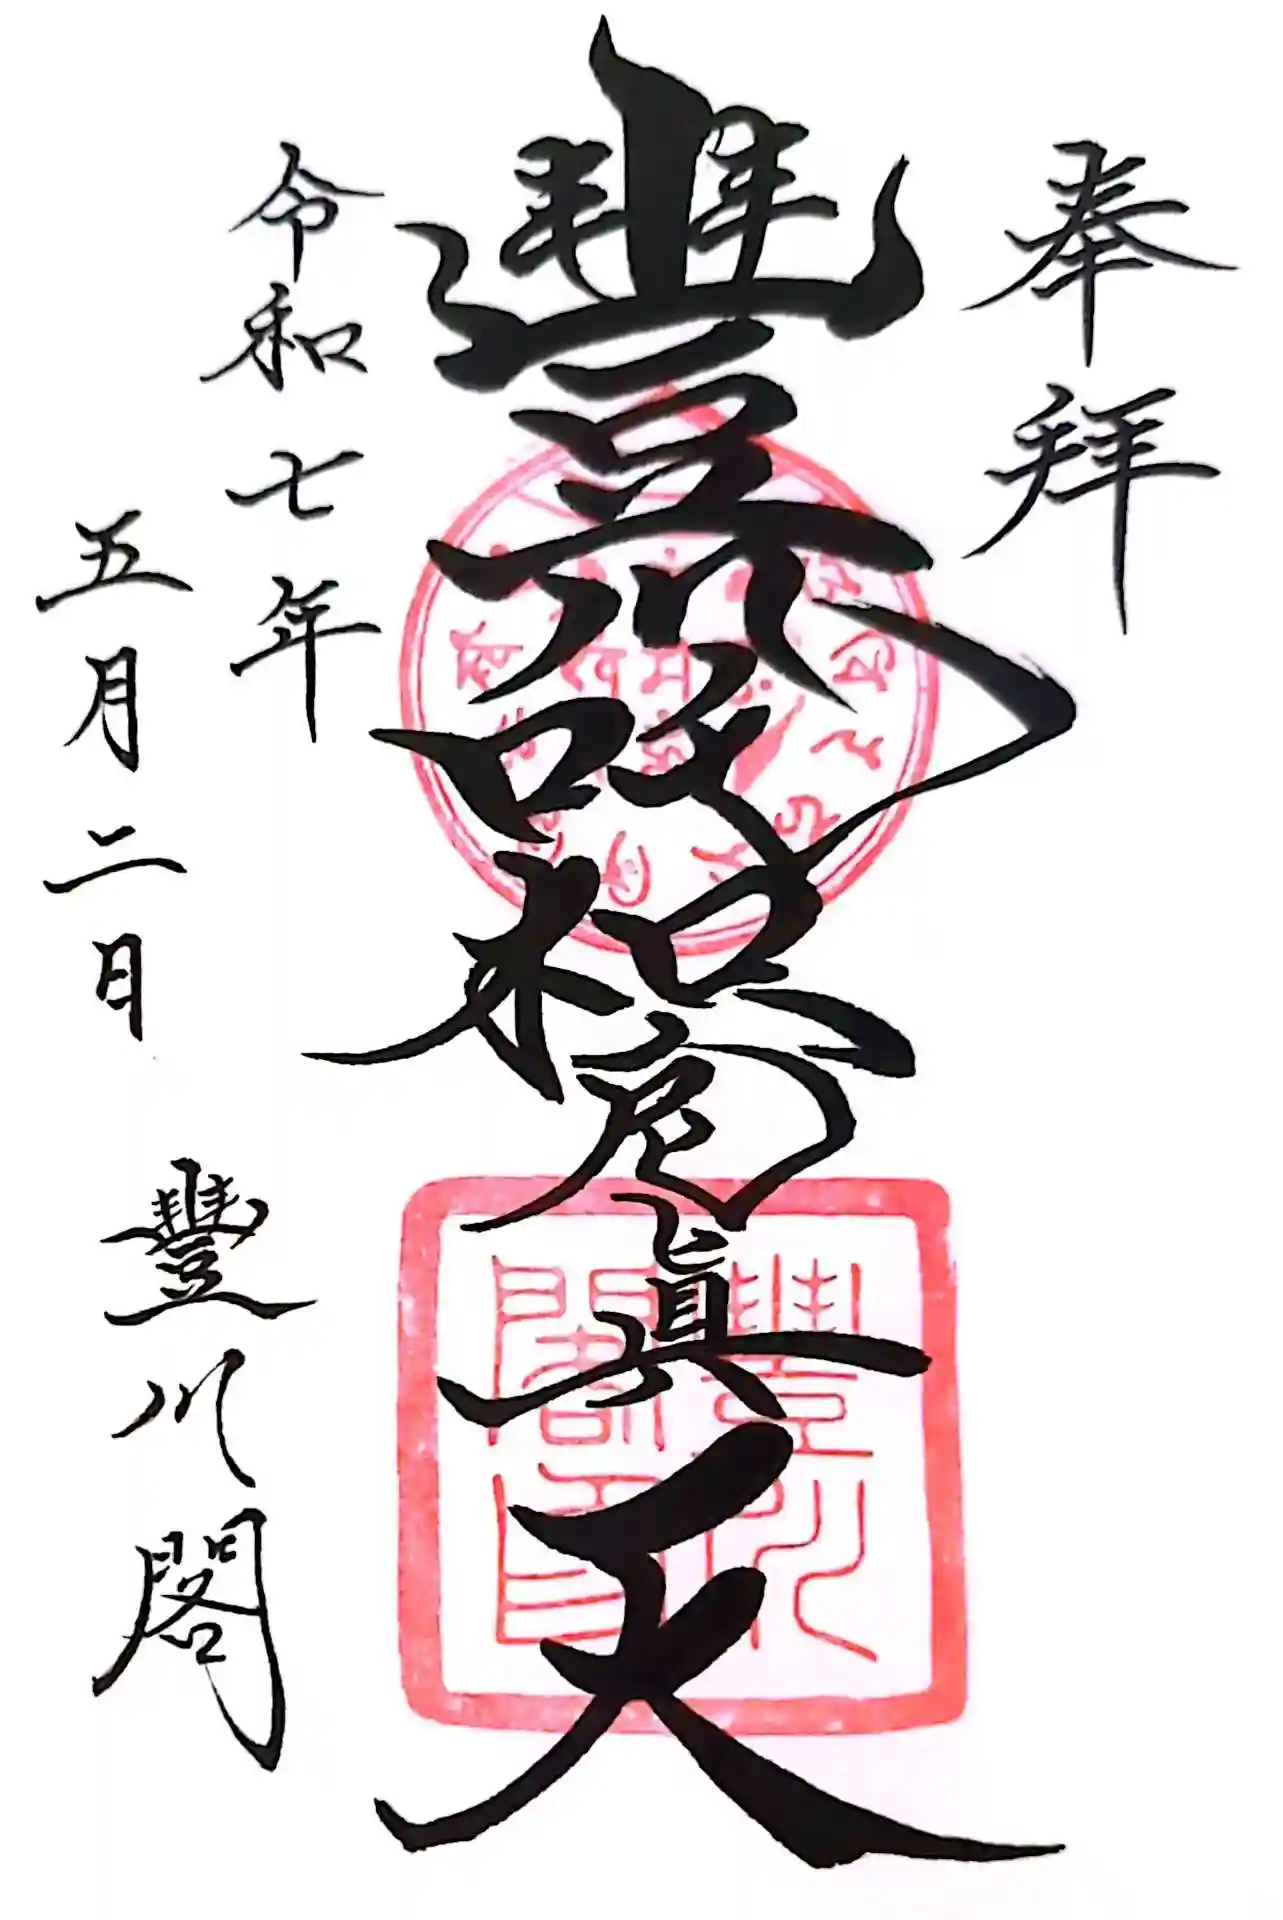 奉拜
豐川吒枳尼眞天
令和七年
五月二日
豐川閣
豐川閣印